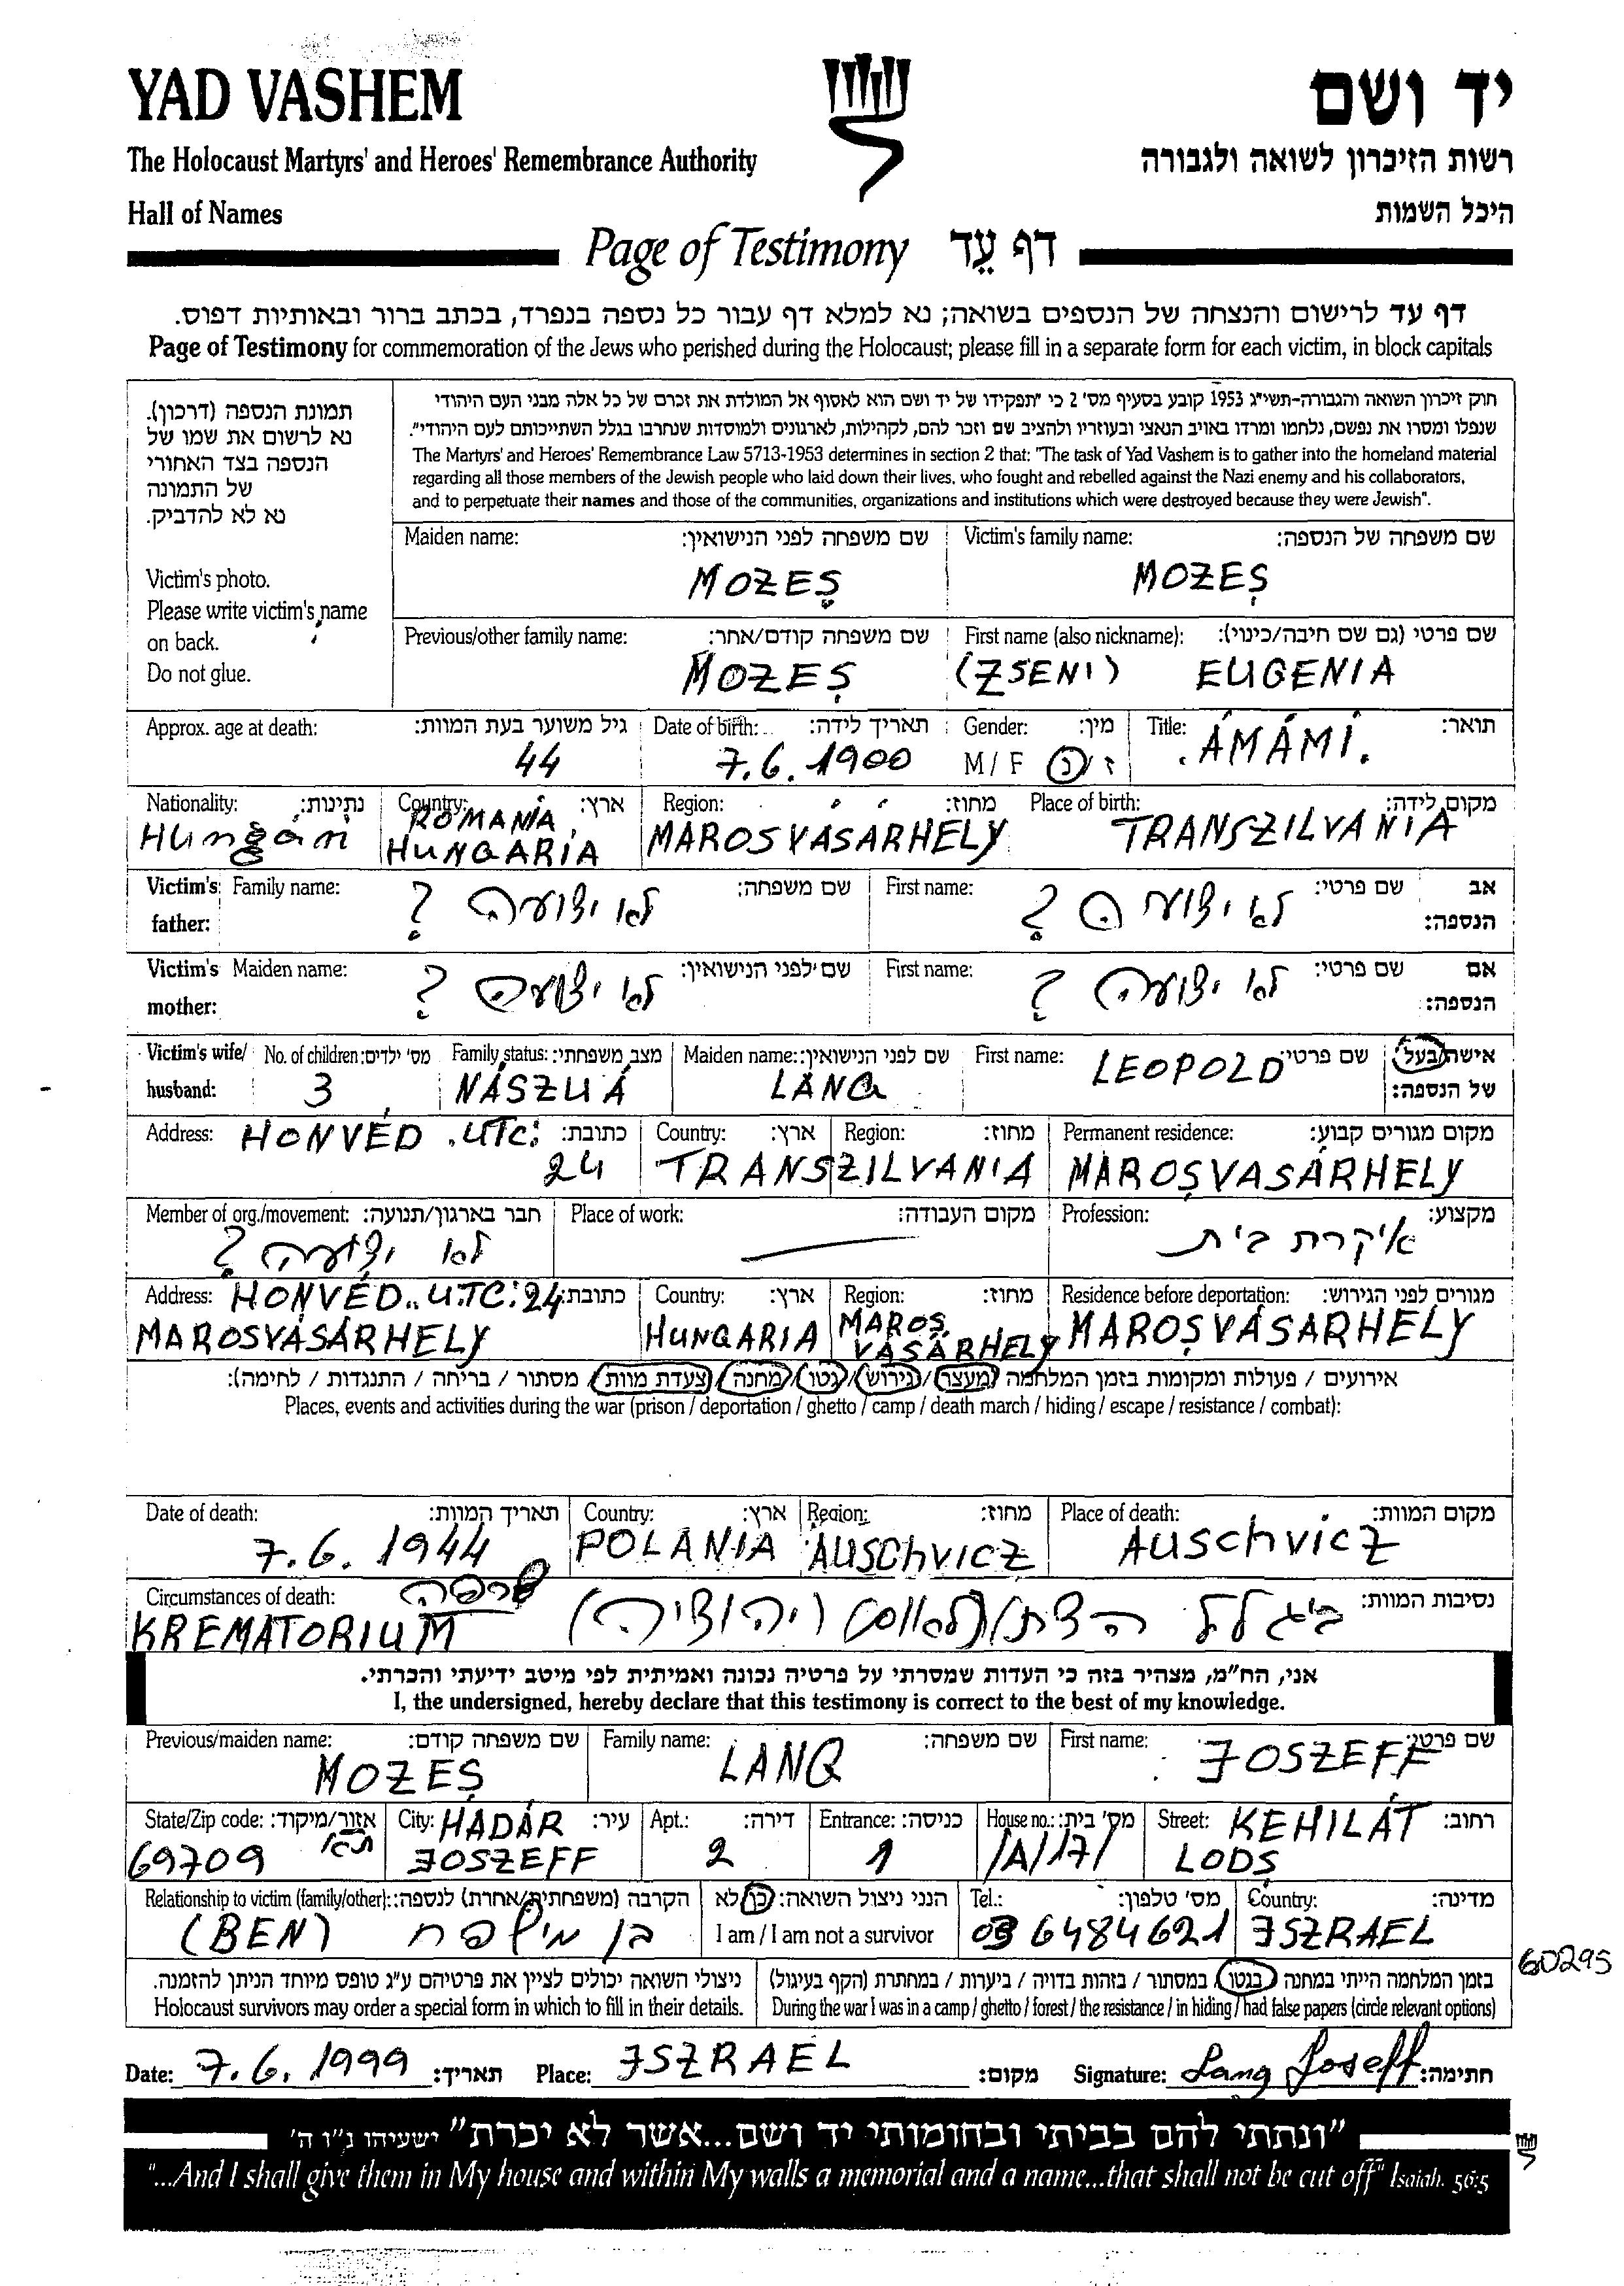 YAD VASHEM
יד ושם
The Holocaust Martyrs' and Heroes' Remembrance Authority
רשות הזיכרון לשואה ולגבורה
Hall of Names
היכל השמות
Page of Testimony דף עֵד
דף עד לרישום והנצחה של הנספים בשואה; נא למלא דף עבור כל נספה בנפרד, בכתב ברור ובאותיות דפוס.
Page of Testimony for commemoration of the Jews who perished during the Holocaust; please fill in a separate form for each victim, in block capitals
תמונת הנספה (דרכון).
נא לרשום את שמו של
הנספה בצד האחורי
של התמונה
נא לא להדביק.
Victim's photo.
Please write victim's name
on back.
Do not glue.
חוק זיכרון השואה והגבורה-תשי"ג 1953 קובע בסעיף מס' 2 כי "תפקידו של יד ושם הוא לאסוף אל המולדת את זכרם של כל אלה מבני העם היהודי
שנפלו ומסרו את נפשם, נלחמו ומרדו באויב הנאצי ובעוזריו ולהציב שם וזכר להם, לקהילות, לארגונים ולמוסדות שנחרבו בגלל השתייכותם לעם היהודי".
The Martyrs' and Heroes' Remembrance Law 5713-1953 determines in section 2 that: "The task of Yad Vashem is to gather into the homeland material
regarding all those members of the Jewish people who laid down their lives, who fought and rebelled against the Nazi enemy and his collaborators,
and to perpetuate their names and those of the communities, organizations and institutions which were destroyed because they were Jewish".
Maiden name: שם משפחה לפני הנישואין: Victim's family name: שם משפחה של הנספה:
MOZEȘ MOZEȘ
Previous/other family name: שם משפחה קודם/אחר: First name (also nickname): שם פרטי (גם שם חיבה/כינוי):
MOZEȘ (ZSENI) EUGENIA
Approx. age at death: גיל משוער בעת המוות: Date of birth: תאריך לידה: Gender: מין: Title: תואר:
44 7.6.1900 M / F ז / נ .ÁMÁMI.
Nationality: נתינות: Country: ארץ: Region: מחוז: Place of birth: מקום לידה:
Hungári ROMANIA HUNGARIA MAROSVÁSÁRHELY TRANSZILVANIA
Victim's father: Family name: שם משפחה: First name: שם פרטי: אב הנספה:
לא ידועה ? לא ידועה ?
Victim's mother: Maiden name: שם לפני הנישואין: First name: שם פרטי: אם הנספה:
לא ידועה ? לא ידועה ?
Victim's wife/ husband: No. of children: מס' ילדים: Family status: מצב משפחתי: Maiden name: שם לפני הנישואין: First name: שם פרטי: אישה/בעל של הנספה:
3 NÁSZUÁ LANG LEOPOLD
Address: כתובת: Country: ארץ: Region: מחוז: Permanent residence: מקום מגורים קבוע:
HONVÉD .UTC: 24 TRANSZILVANIA MAROȘVASÁRHELY
Member of org./movement: חבר בארגון/תנועה: Place of work: מקום העבודה: Profession: מקצוע:
לא ידועה ? עקרת בית
Address: כתובת: Country: ארץ: Region: מחוז: Residence before deportation: מגורים לפני הגירוש:
HONVÉD.. UTC: 24 MAROSVÁSÁRHELY HUNGARIA MAROS VÁSÁRHELY MAROȘVÁSARHELY
אירועים / פעולות ומקומות בזמן המלחמה (מעצר / גירוש / גטו / מחנה / צעדת מוות / מסתור / בריחה / התנגדות / לחימה):
Places, events and activities during the war (prison / deportation / ghetto / camp / death march / hiding / escape / resistance / combat):
Date of death: תאריך המוות: Country: ארץ: Region: מחוז: Place of death: מקום המוות:
7.6.1944 POLANIA AUSCHVICZ AUSCHVICZ
Circumstances of death: נסיבות המוות:
KREMATORIUM שרפה ביגלל הדת/(לאום) (יהודיה)
אני, הח"מ, מצהיר בזה כי העדות שמסרתי על פרטיה נכונה ואמיתית לפי מיטב ידיעתי והכרתי.
I, the undersigned, hereby declare that this testimony is correct to the best of my knowledge.
Previous/maiden name: שם משפחה קודם: Family name: שם משפחה: First name: שם פרטי:
MOZEȘ LANG JOSZEFF
State/Zip code: אזור/מיקוד: City: עיר: Apt.: דירה: Entrance: כניסה: House no.: מס' בית: Street: רחוב:
69709 תא HADÁR JOSZEFF 2 1 /A/17/ KEHILÁT LODS
Relationship to victim (family/other): הקרבה (משפחתית/אחרת) לנספה: הנני ניצול השואה: כן/לא Tel.: מס' טלפון: Country: מדינה:
(BEN) בן משפחה I am / I am not a survivor 03 6484621 JSZRAEL
ניצולי השואה יכולים לציין את פרטיהם ע"ג טופס מיוחד הניתן להזמנה. בזמן המלחמה הייתי במחנה / בגטו / במסתור / בזהות בדויה / ביערות / במחתרת (הקף בעיגול)
60295
Holocaust survivors may order a special form in which to fill in their details. During the war I was in a camp / ghetto / forest / the resistance / in hiding / had false papers (circle relevant options)
Date: 7.6.1999 תאריך: Place: JSZRAEL מקום: Signature: Lang Joseff חתימה:
"ונתתי להם בביתי ובחומותי יד ושם...אשר לא יכרת" ישעיהו נ"ו ה'
"...And I shall give them in My house and within My walls a memorial and a name...that shall not be cut off" Isaiah. 56:5